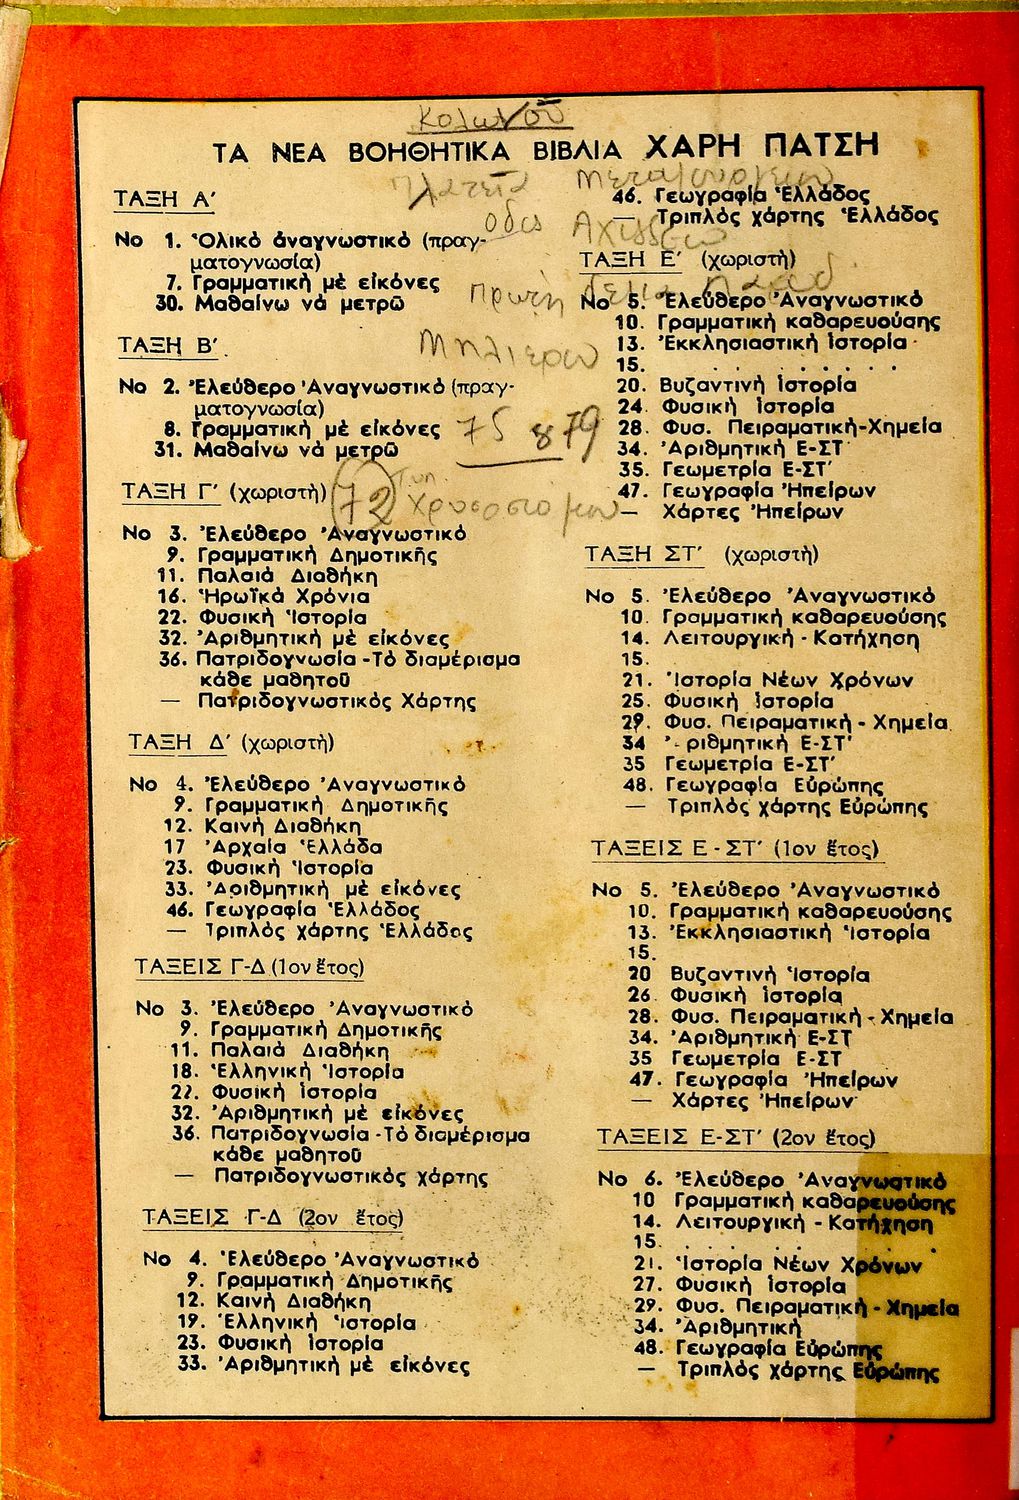 Κολωνοῦ
ΤΑ ΝΕΑ ΒΟΗΘΗΤΙΚΑ ΒΙΒΛΙΑ ΧΑΡΗ ΠΑΤΣΗ
ΤΑΞΗ Α′
Νο 1. Ὁλικό ἀναγνωστικό (πραγ-
ματογνωσία)
7. Γραμματική μέ εἰκόνες
30. Μαθαίνω νά μετρῶ
ΤΑΞΗ Β′.
Νο 2. Ἐλεύθερο Ἀναγνωστικό (πραγ-
ματογνωσία)
8. Γραμματική μέ εἰκόνες
31. Μαθαίνω νά μετρῶ
ΤΑΞΗ Γ′ (χωριστή)
Νο 3. Ἐλεύθερο Ἀναγνωστικό
9. Γραμματική Δημοτικῆς
11. Παλαιά Διαθήκη
16. Ἡρωϊκά Χρόνια
22. Φυσική Ἱστορία
32. Ἀριθμητική μέ εἰκόνες
36. Πατριδογνωσία - Τό διαμέρισμα
κάθε μαθητοῦ
— Πατριδογνωστικός Χάρτης
ΤΑΞΗ Δ′ (χωριστή)
Νο 4. Ἐλεύθερο Ἀναγνωστικό
9. Γραμματική Δημοτικῆς
12. Καινή Διαθήκη
17 Ἀρχαία Ἑλλάδα
23. Φυσική Ἱστορία
33. Ἀριθμητική μέ εἰκόνες
46. Γεωγραφία Ἑλλάδος
— Τριπλός χάρτης Ἑλλάδος
ΤΑΞΕΙΣ Γ-Δ (1ον ἔτος)
Νο 3. Ἐλεύθερο Ἀναγνωστικό
9. Γραμματική Δημοτικῆς
11. Παλαιά Διαθήκη
18. Ἑλληνική Ἱστορία
22. Φυσική ἱστορία
32. Ἀριθμητική μέ εἰκόνες
36. Πατριδογνωσία - Τό διαμέρισμα
κάθε μαθητοῦ
— Πατριδογνωστικός χάρτης
ΤΑΞΕΙΣ Γ-Δ (2ον ἔτος)
Νο 4. Ἐλεύθερο Ἀναγνωστικό
9. Γραμματική Δημοτικῆς
12. Καινή Διαθήκη
19. Ἑλληνική ἱστορία
23. Φυσική ἱστορία
33. Ἀριθμητική μέ εἰκόνες
πλατεῖα Μεταξουργείου
46. Γεωγραφία Ἑλλάδος
— Τριπλός χάρτης Ἑλλάδος
οδος
ΤΑΞΗ Ε′ (χωριστή)
πρώτη
Νο 5. Ἐλεύθερο Ἀναγνωστικό
10. Γραμματική καθαρευούσης
13. Ἐκκλησιαστική ἱστορία
15. . . . . . . .
20. Βυζαντινή ἱστορία
24. Φυσική ἱστορία
28. Φυσ. Πειραματική - Χημεία
75 879
34. Ἀριθμητική Ε-ΣΤ′
35. Γεωμετρία Ε-ΣΤ′
47. Γεωγραφία Ἠπείρων
72
— Χάρτες Ἠπείρων
ΤΑΞΗ ΣΤ′ (χωριστή)
Νο 5. Ἐλεύθερο Ἀναγνωστικό
10. Γραμματική καθαρευούσης
14. Λειτουργική - Κατήχηση
15.
21. Ἱστορία Νέων Χρόνων
25. Φυσική ἱστορία
29. Φυσ. Πειραματική - Χημεία
34 Ἀριθμητική Ε-ΣΤ′
35 Γεωμετρία Ε-ΣΤ′
48. Γεωγραφία Εὐρώπης
— Τριπλός χάρτης Εὐρώπης
ΤΑΞΕΙΣ Ε-ΣΤ′ (1ον ἔτος)
Νο 5. Ἐλεύθερο Ἀναγνωστικό
10. Γραμματική καθαρευούσης
13. Ἐκκλησιαστική Ἱστορία
15.
20 Βυζαντινή Ἱστορία
26. Φυσική ἱστορία
28. Φυσ. Πειραματική - Χημεία
34. Ἀριθμητική Ε-ΣΤ
35 Γεωμετρία Ε-ΣΤ
47. Γεωγραφία Ἠπείρων
— Χάρτες Ἠπείρων
ΤΑΞΕΙΣ Ε-ΣΤ′ (2ον ἔτος)
Νο 6. Ἐλεύθερο Ἀναγνωστικό
10 Γραμματική καθαρευούσης
14. Λειτουργική - Κατήχηση
15. . . . . . . .
21. Ἱστορία Νέων Χρόνων
27. Φυσική ἱστορία
29. Φυσ. Πειραματική - Χημεία
34. Ἀριθμητική
48. Γεωγραφία Εὐρώπης
— Τριπλός χάρτης Εὐρώπης